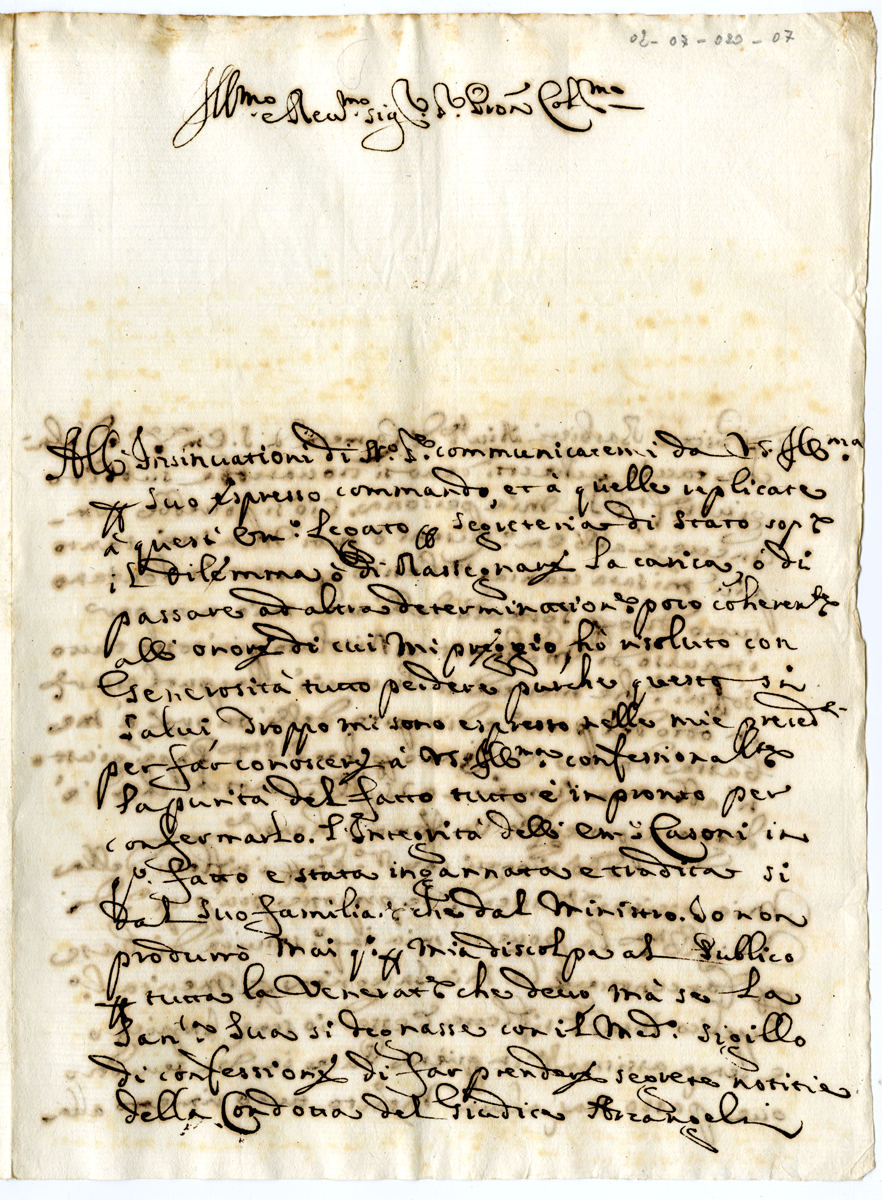 02-07-020-07
Ill.mo e Rev.mo Sig.r S.r Pron Col.mo
Alle Insinuationi di N.o S.re communicatemi da V.S. Ill.ma
suo espresso commando, et à quelle replicate
à questi Em.o Legato Segreteria di Stato sop.a
il dilemma ò di Rassegnare la carica, ò di
passare ad altra determinatione poco coherente
alli onori di cui mi preggio, hò risoluto con
Generosità tutto perdere purche questo si
salvi, Troppo mi sono espresso nelle mie preced.ti
per far conoscere à V.S. Ill.ma confessionalm.te
la purità del fatto tutto è in pronto per
confermarlo. l'Integrità delli Em.i Casoni in
q.o fatto è stata ingannata e tradita si
dal suo familia. che dal Ministro. Io non
produrrò mai q.a mia discolpa al Publico
tutta la Venerat.e che devo, mà se la
San.tà Sua si degnasse con il Med.o sigillo
di confessione di far prendere segrete notitie
della Condotta del Giudice Arcangeli